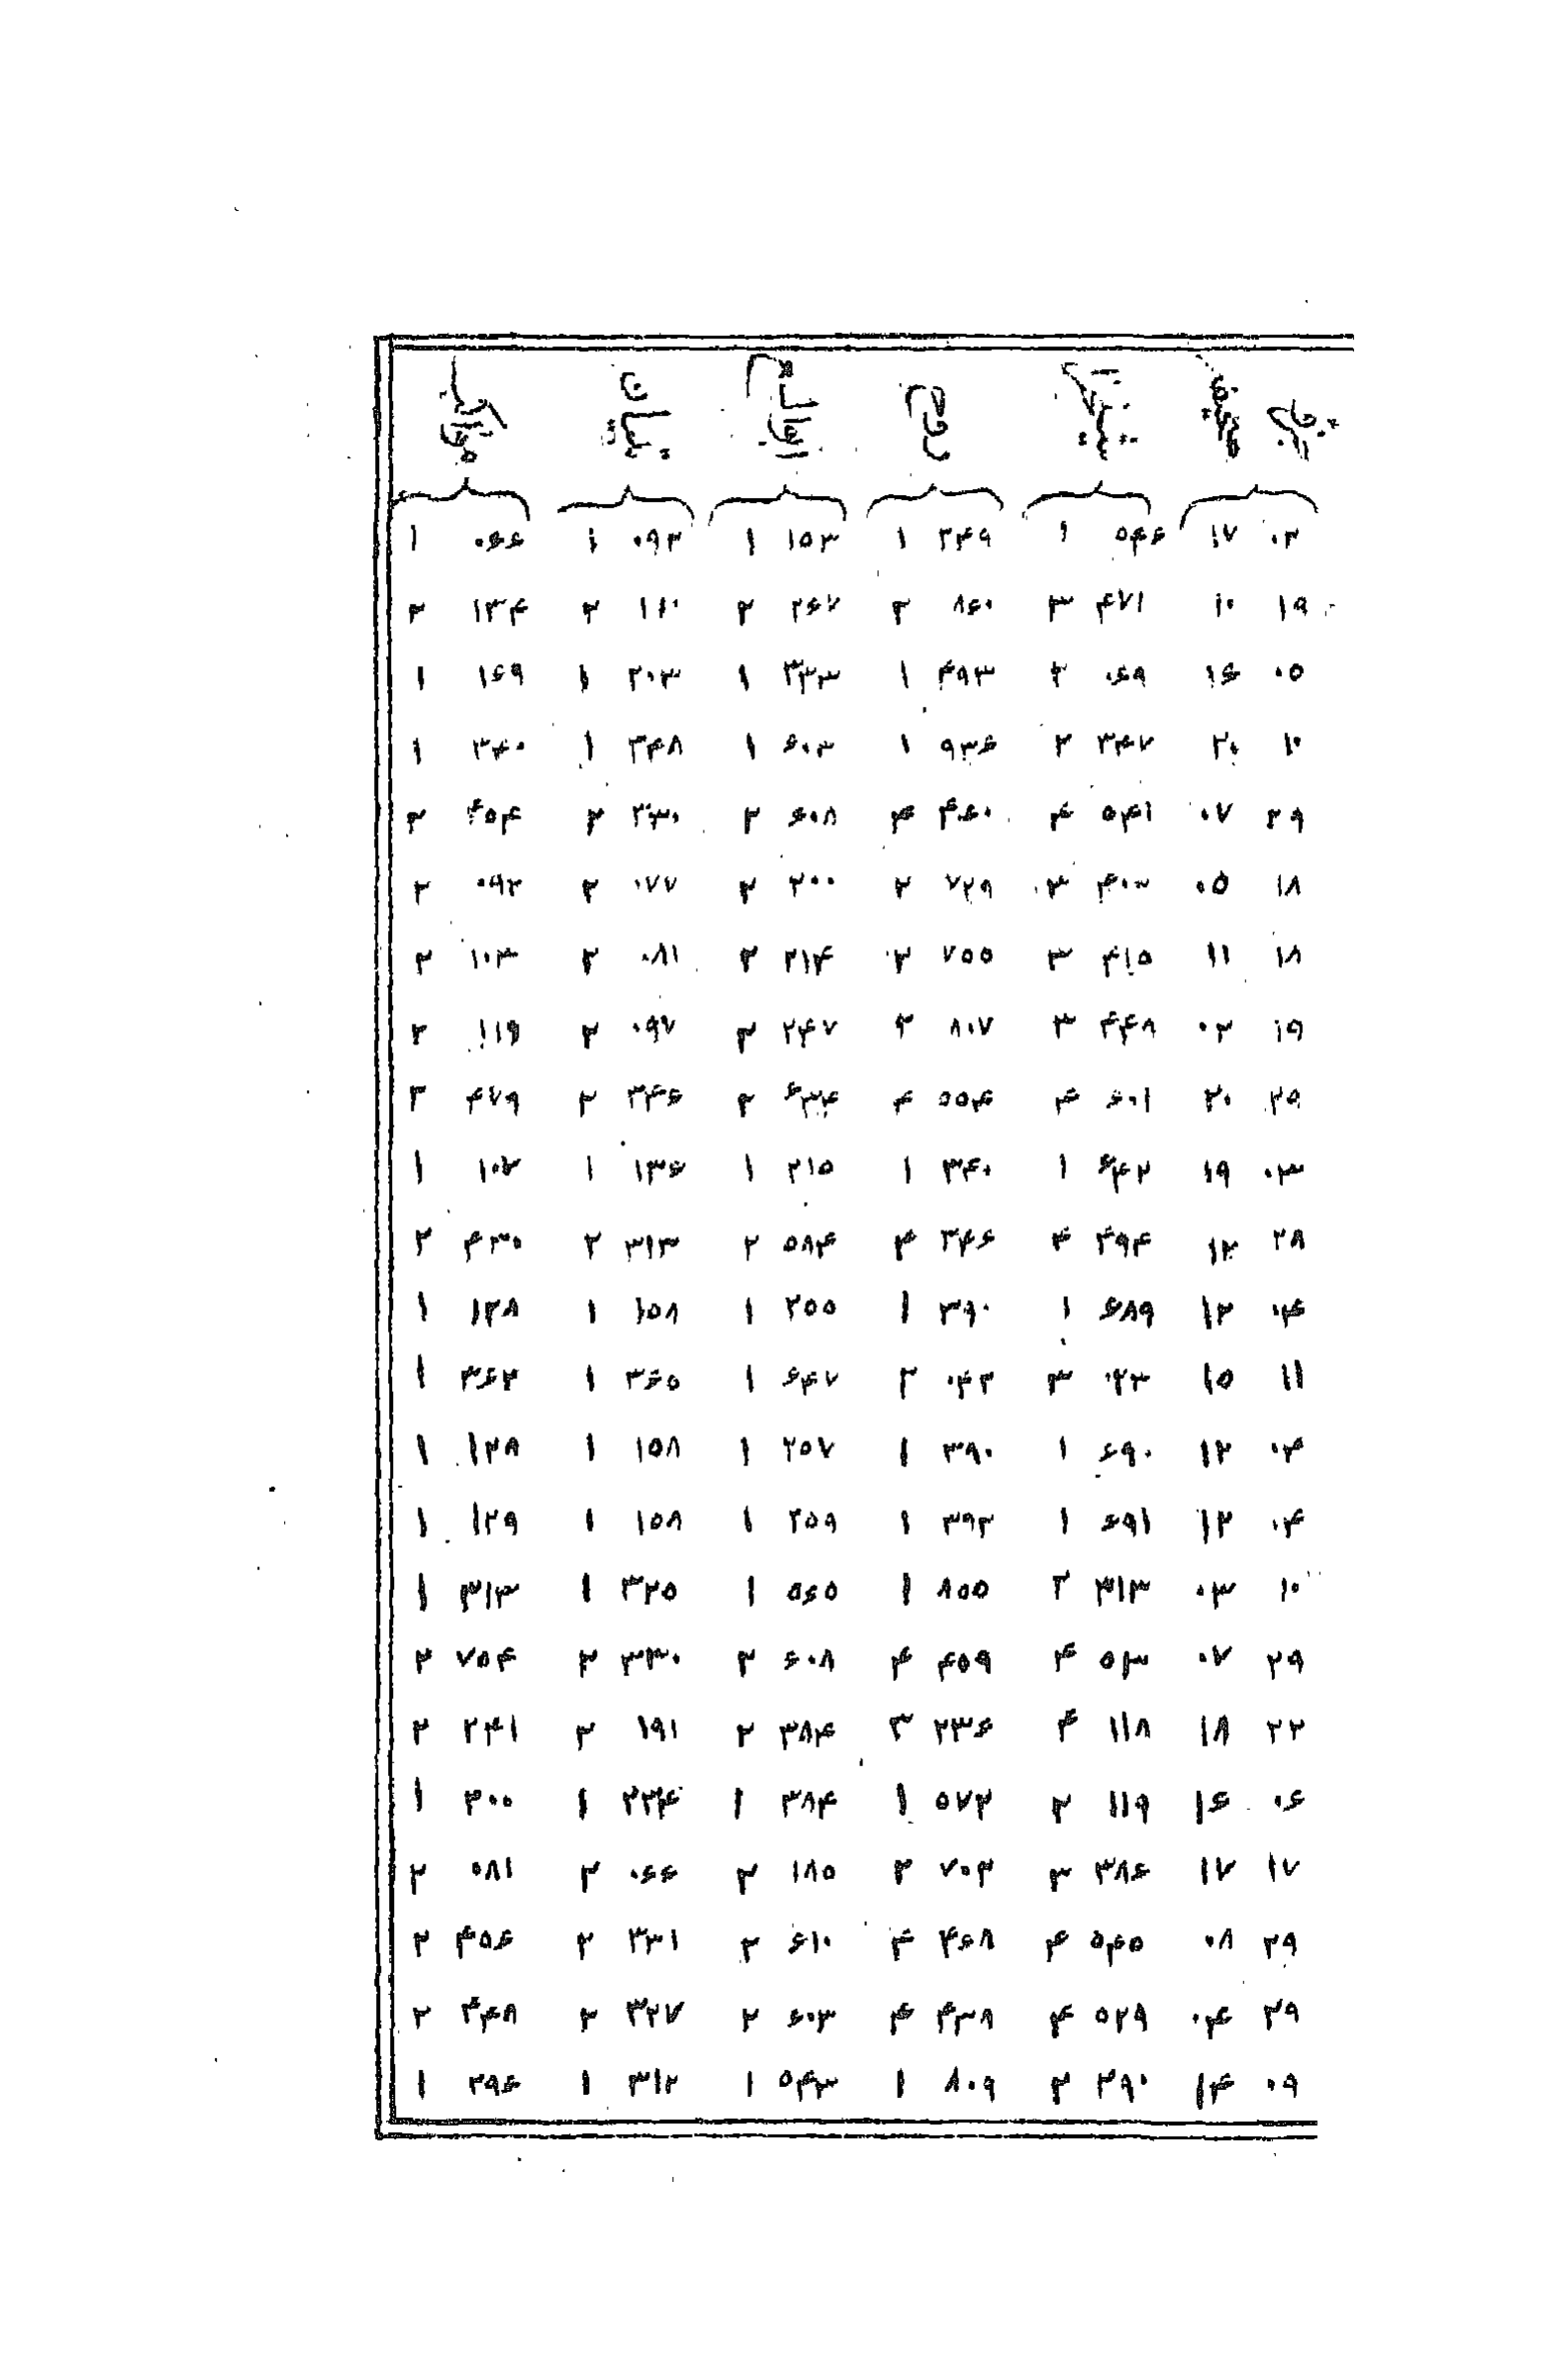 ۰۲ ۱۷ ۵۴۶ ۱ ۲۴۹ ۱ ۱۵۳ ۱ ۰۹۳ ۱ ۰۶۶ ۱
۱۹ ۱۰ ۴۷۱ ۳ ۸۶۰ ۲ ۲۶۷ ۲ ۱۱۰ ۲ ۱۳۴ ۲
۰۵ ۱۶ ۰۶۹ ۲ ۴۹۳ ۱ ۳۳۳ ۱ ۲۰۳ ۱ ۱۶۹ ۱
۱۰ ۲۰ ۳۴۷ ۲ ۹۳۶ ۱ ۶۰۳ ۱ ۳۴۸ ۱ ۳۴۰ ۱
۲۹ ۰۷ ۵۴۱ ۴ ۴۶۰ ۴ ۶۰۸ ۲ ۳۳۰ ۲ ۴۵۴ ۲
۱۸ ۰۵ ۴۰۳ ۳ ۷۲۹ ۲ ۲۰۰ ۲ ۰۷۷ ۲ ۰۹۲ ۲
۱۸ ۱۱ ۴۱۵ ۳ ۷۵۵ ۲ ۲۱۴ ۲ ۰۸۱ ۲ ۱۰۳ ۲
۱۹ ۰۲ ۴۴۸ ۳ ۸۰۷ ۲ ۲۴۷ ۲ ۰۹۷ ۲ ۱۱۹ ۲
۲۹ ۲۰ ۶۰۱ ۴ ۵۵۴ ۴ ۶۳۴ ۲ ۳۴۶ ۲ ۴۷۹ ۲
۰۳ ۱۹ ۶۴۲ ۱ ۳۴۰ ۱ ۲۱۵ ۱ ۱۳۶ ۱ ۱۰۷ ۱
۲۸ ۱۲ ۴۹۴ ۴ ۳۴۶ ۴ ۵۸۴ ۲ ۳۱۳ ۲ ۴۳۰ ۲
۰۴ ۱۲ ۶۸۹ ۱ ۳۹۰ ۱ ۲۵۵ ۱ ۱۵۸ ۱ ۱۲۸ ۱
۱۱ ۱۵ ۰۲۳ ۳ ۰۴۲ ۲ ۶۴۷ ۱ ۳۶۵ ۱ ۳۶۲ ۱
۰۴ ۱۲ ۶۹۰ ۱ ۳۹۰ ۱ ۲۵۷ ۱ ۱۵۸ ۱ ۱۲۸ ۱
۰۴ ۱۲ ۶۹۱ ۱ ۳۹۲ ۱ ۲۵۹ ۱ ۱۵۸ ۱ ۱۲۹ ۱
۱۰ ۰۳ ۳۱۳ ۲ ۸۵۵ ۱ ۵۶۵ ۱ ۳۲۵ ۱ ۳۱۳ ۱
۲۹ ۰۷ ۵۳ ۴ ۴۵۹ ۴ ۶۰۸ ۲ ۳۳۰ ۲ ۷۵۴ ۲
۲۲ ۱۸ ۱۱۸ ۴ ۲۳۶ ۳ ۳۸۴ ۲ ۱۹۱ ۲ ۲۴۱ ۲
۰۶ ۱۶ ۱۱۹ ۲ ۵۷۲ ۱ ۳۸۴ ۱ ۲۳۴ ۱ ۲۰۰ ۱
۱۷ ۱۷ ۳۸۶ ۳ ۷۰۲ ۲ ۱۸۵ ۲ ۰۶۶ ۲ ۰۸۱ ۲
۲۹ ۰۸ ۵۴۵ ۴ ۴۶۸ ۴ ۶۱۰ ۲ ۳۳۱ ۲ ۴۵۶ ۲
۲۹ ۰۴ ۵۲۹ ۴ ۴۳۸ ۴ ۶۰۳ ۲ ۳۲۷ ۲ ۴۴۸ ۲
۰۹ ۱۴ ۲۹۰ ۲ ۸۰۹ ۱ ۵۴۳ ۱ ۳۱۲ ۱ ۲۹۶ ۱